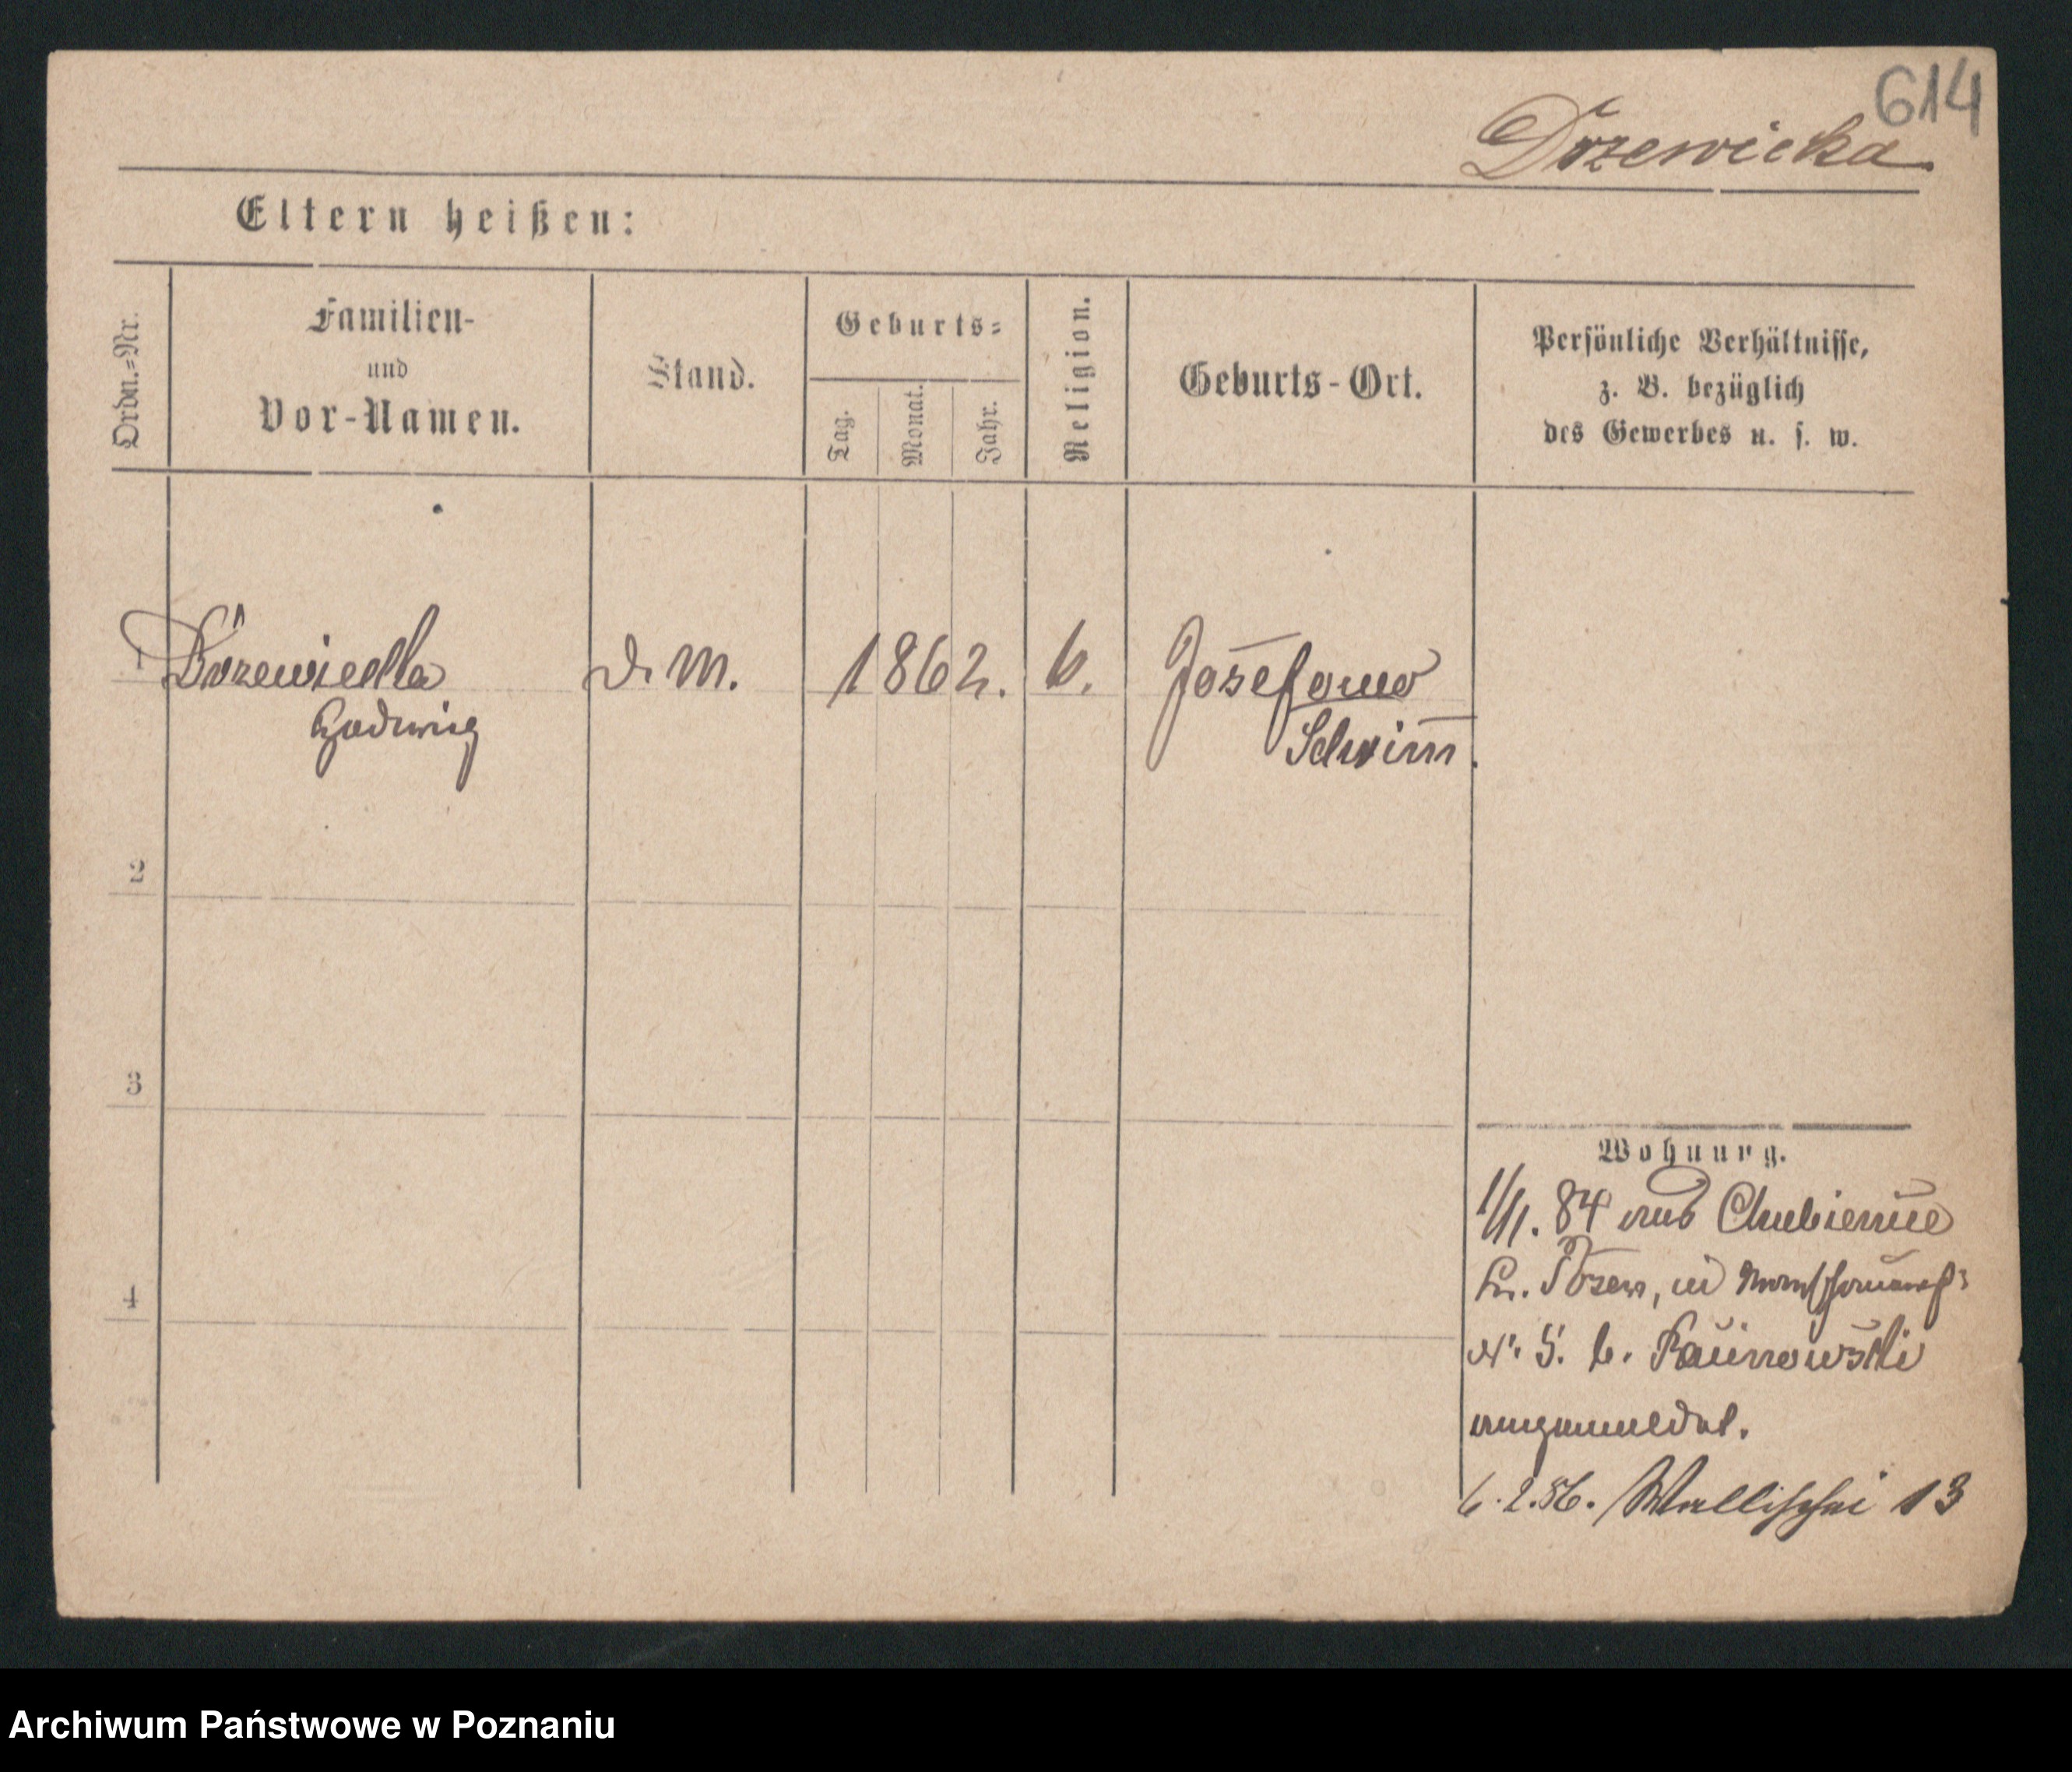 614
Drzewicka
Eltern heißen:
Ordn.=Nr.
Familien-
und
Vor-Namen.
Stand.
Geburts=
Tag.
Monat.
Jahr.
Religion.
Geburts-Ort.
Persönliche Verhältnisse,
z. B. bezüglich
des Gewerbes u. s. w.
1
Drzewiecka
Hedwig
D. M.
1862.
k.
Josefowo
Schrim̅.
2
3
4
Wohnung.
1/1. 84 aus
Kr. Posen, in
N. 5. b.
angemeldet.
6.2.86. Wallischei 13
Archiwum Państwowe w Poznaniu